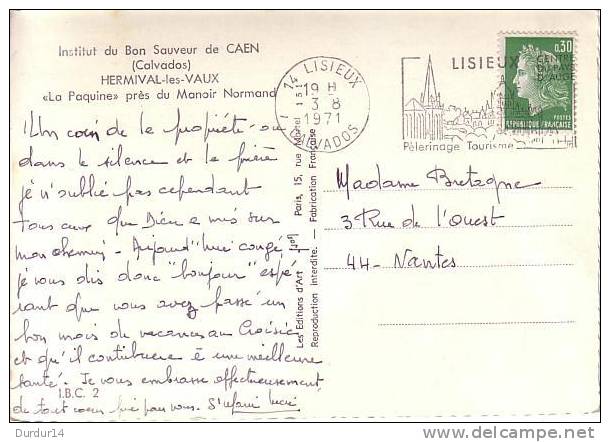 Institut du Bon Sauveur de CAEN
(Calvados)
HERMIVAL-les-VAUX
«La Paquine" près du Manoir Normand
Un coin de la propriété où
dans le silence et la prière
je n'oublie pas cependant
tous ceux que Dieu a mis sur
mon chemin - Aujourd'hui congé
je vous dis donc "bonjour" espé
rant que vous avez passé un
bon mois de vacances au Croisic
et qu'il contribuera à une meilleure
santé. Je vous embrasse affectueusement
de tout cœur pour vous.
I.B.C. 2
Les Editions d'Art Paris, 15, rue
Reproduction interdite. — Fabrication Française
14 LISIEUX
19 H
3-8
1971
CALVADOS
LISIEUX
CENTRE
DU PAYS
D'AUGE
Pèlerinage Tourisme
0,30
POSTES
REPUBLIQUE FRANÇAISE
Madame Bretagne
3 Rue de l'Ouest
44 - Nantes
Durdur14
delcampe.net